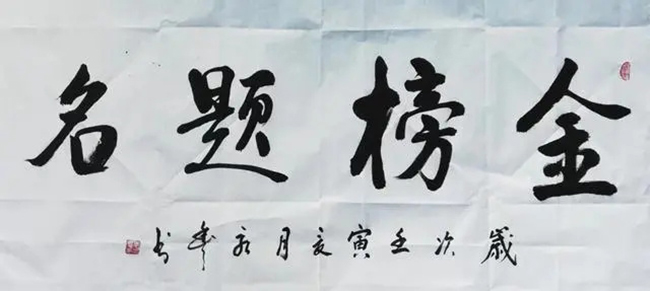 金榜题名
岁次壬寅亥月永年书